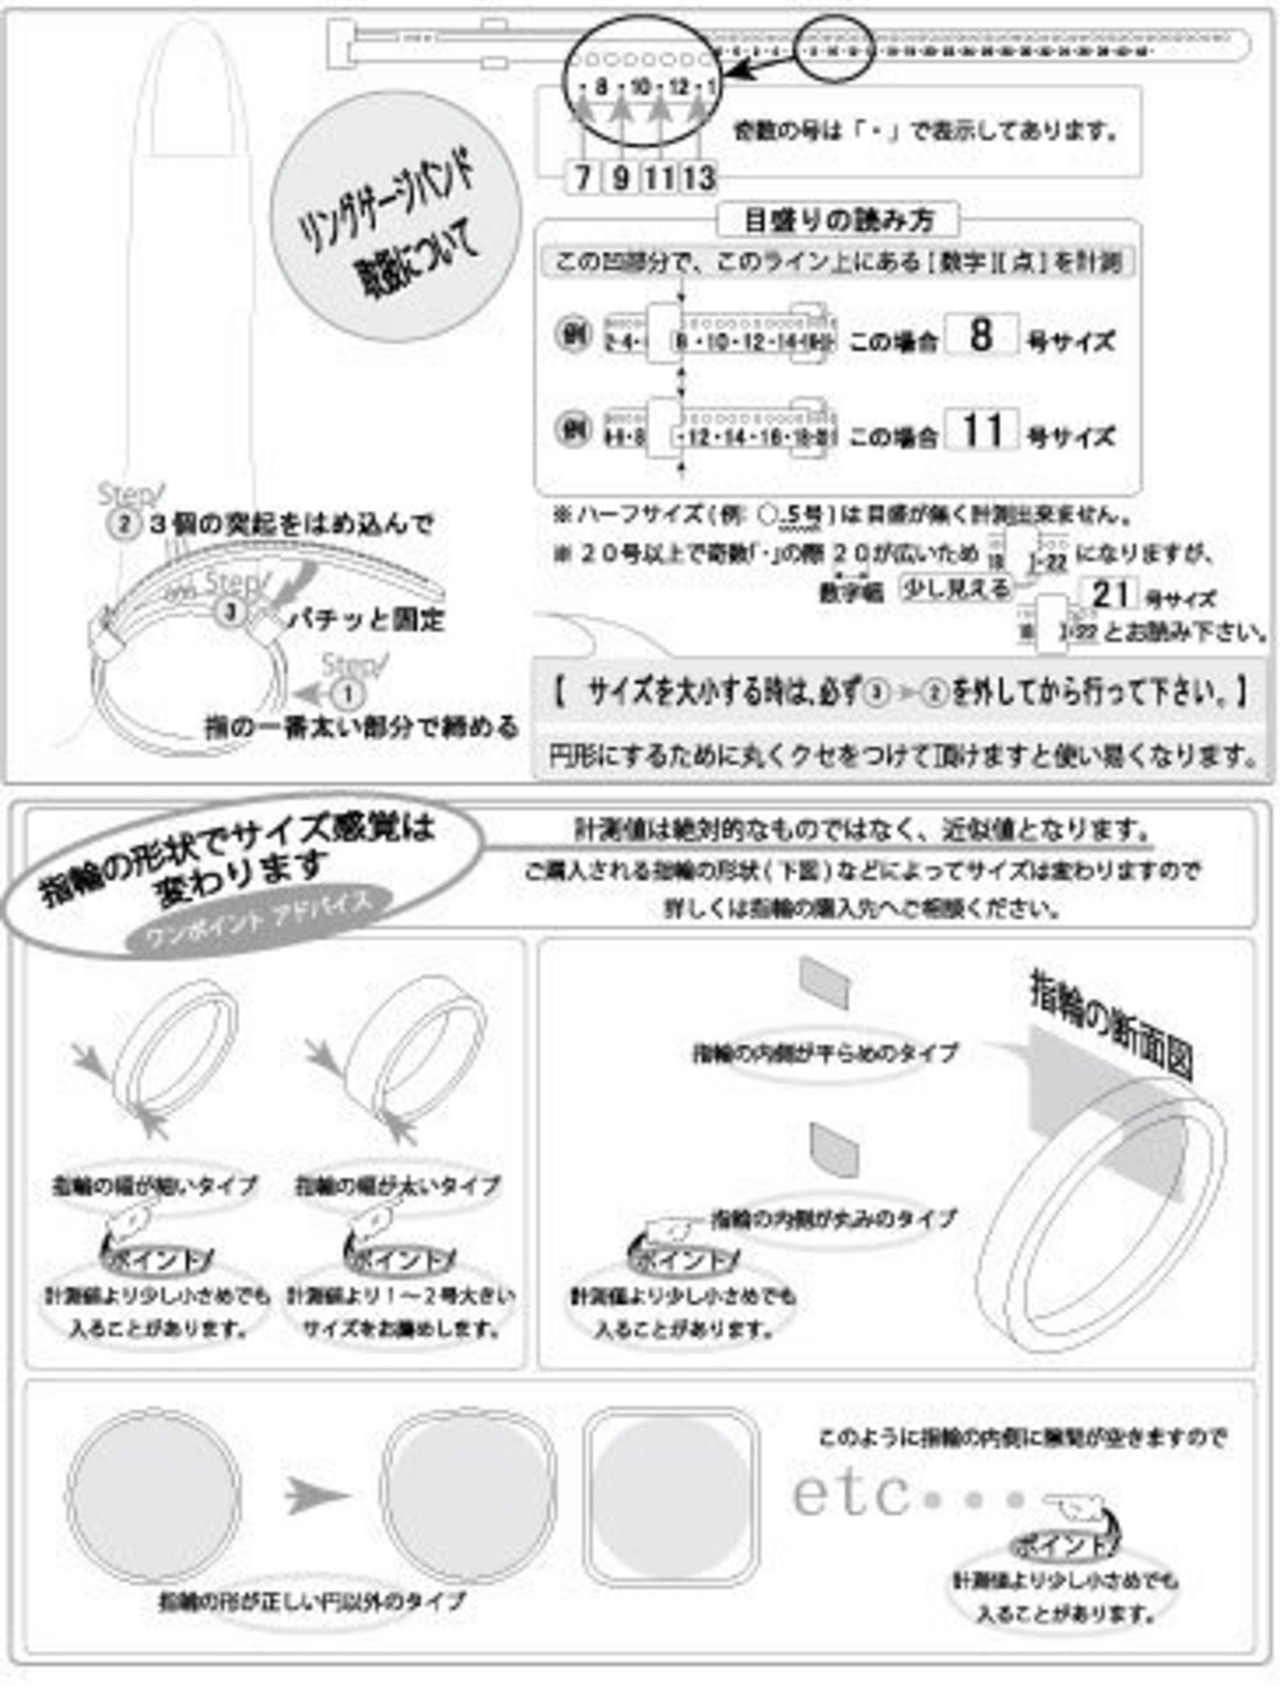 リングゲージバンド
取扱について
・8・10・12・1
7 9 11 13
奇数の号は「・」で表示してあります。
目盛りの読み方
この凹部分で、このライン上にある[数字][点]を計測
例
8・10・12・14・
この場合 8 号サイズ
例
・12・14・16・18・
この場合 11 号サイズ
※ハーフサイズ(例:○.5号)は目盛が無く計測出来ません。
※20号以上で奇数「・」の際20が広いため 18 ・22 になりますが、
数字幅 少し見える 21 号サイズ
18 ・22 とお読み下さい。
Step!
② 3個の突起をはめ込んで
Step!
③ パチッと固定
Step!
①
指の一番太い部分で締める
【 サイズを大小する時は、必ず③➤②を外してから行って下さい。】
円形にするために丸くクセをつけて頂けますと使い易くなります。
指輪の形状でサイズ感覚は
変わります
ワンポイント アドバイス
計測値は絶対的なものではなく、近似値となります。
ご購入される指輪の形状(下図)などによってサイズは変わりますので
詳しくは指輪の購入先へご相談ください。
指輪の幅が細いタイプ
ポイント
計測値より少し小さめでも
入ることがあります。
指輪の幅が太いタイプ
ポイント
計測値より1～2号大きい
サイズをお薦めします。
指輪の断面図
指輪の内側が平らめのタイプ
指輪の内側が丸みのタイプ
ポイント
計測値より少し小さめでも
入ることがあります。
指輪の形が正しい円以外のタイプ
このように指輪の内側に隙間が空きますので
etc・・・
ポイント
計測値より少し小さめでも
入ることがあります。